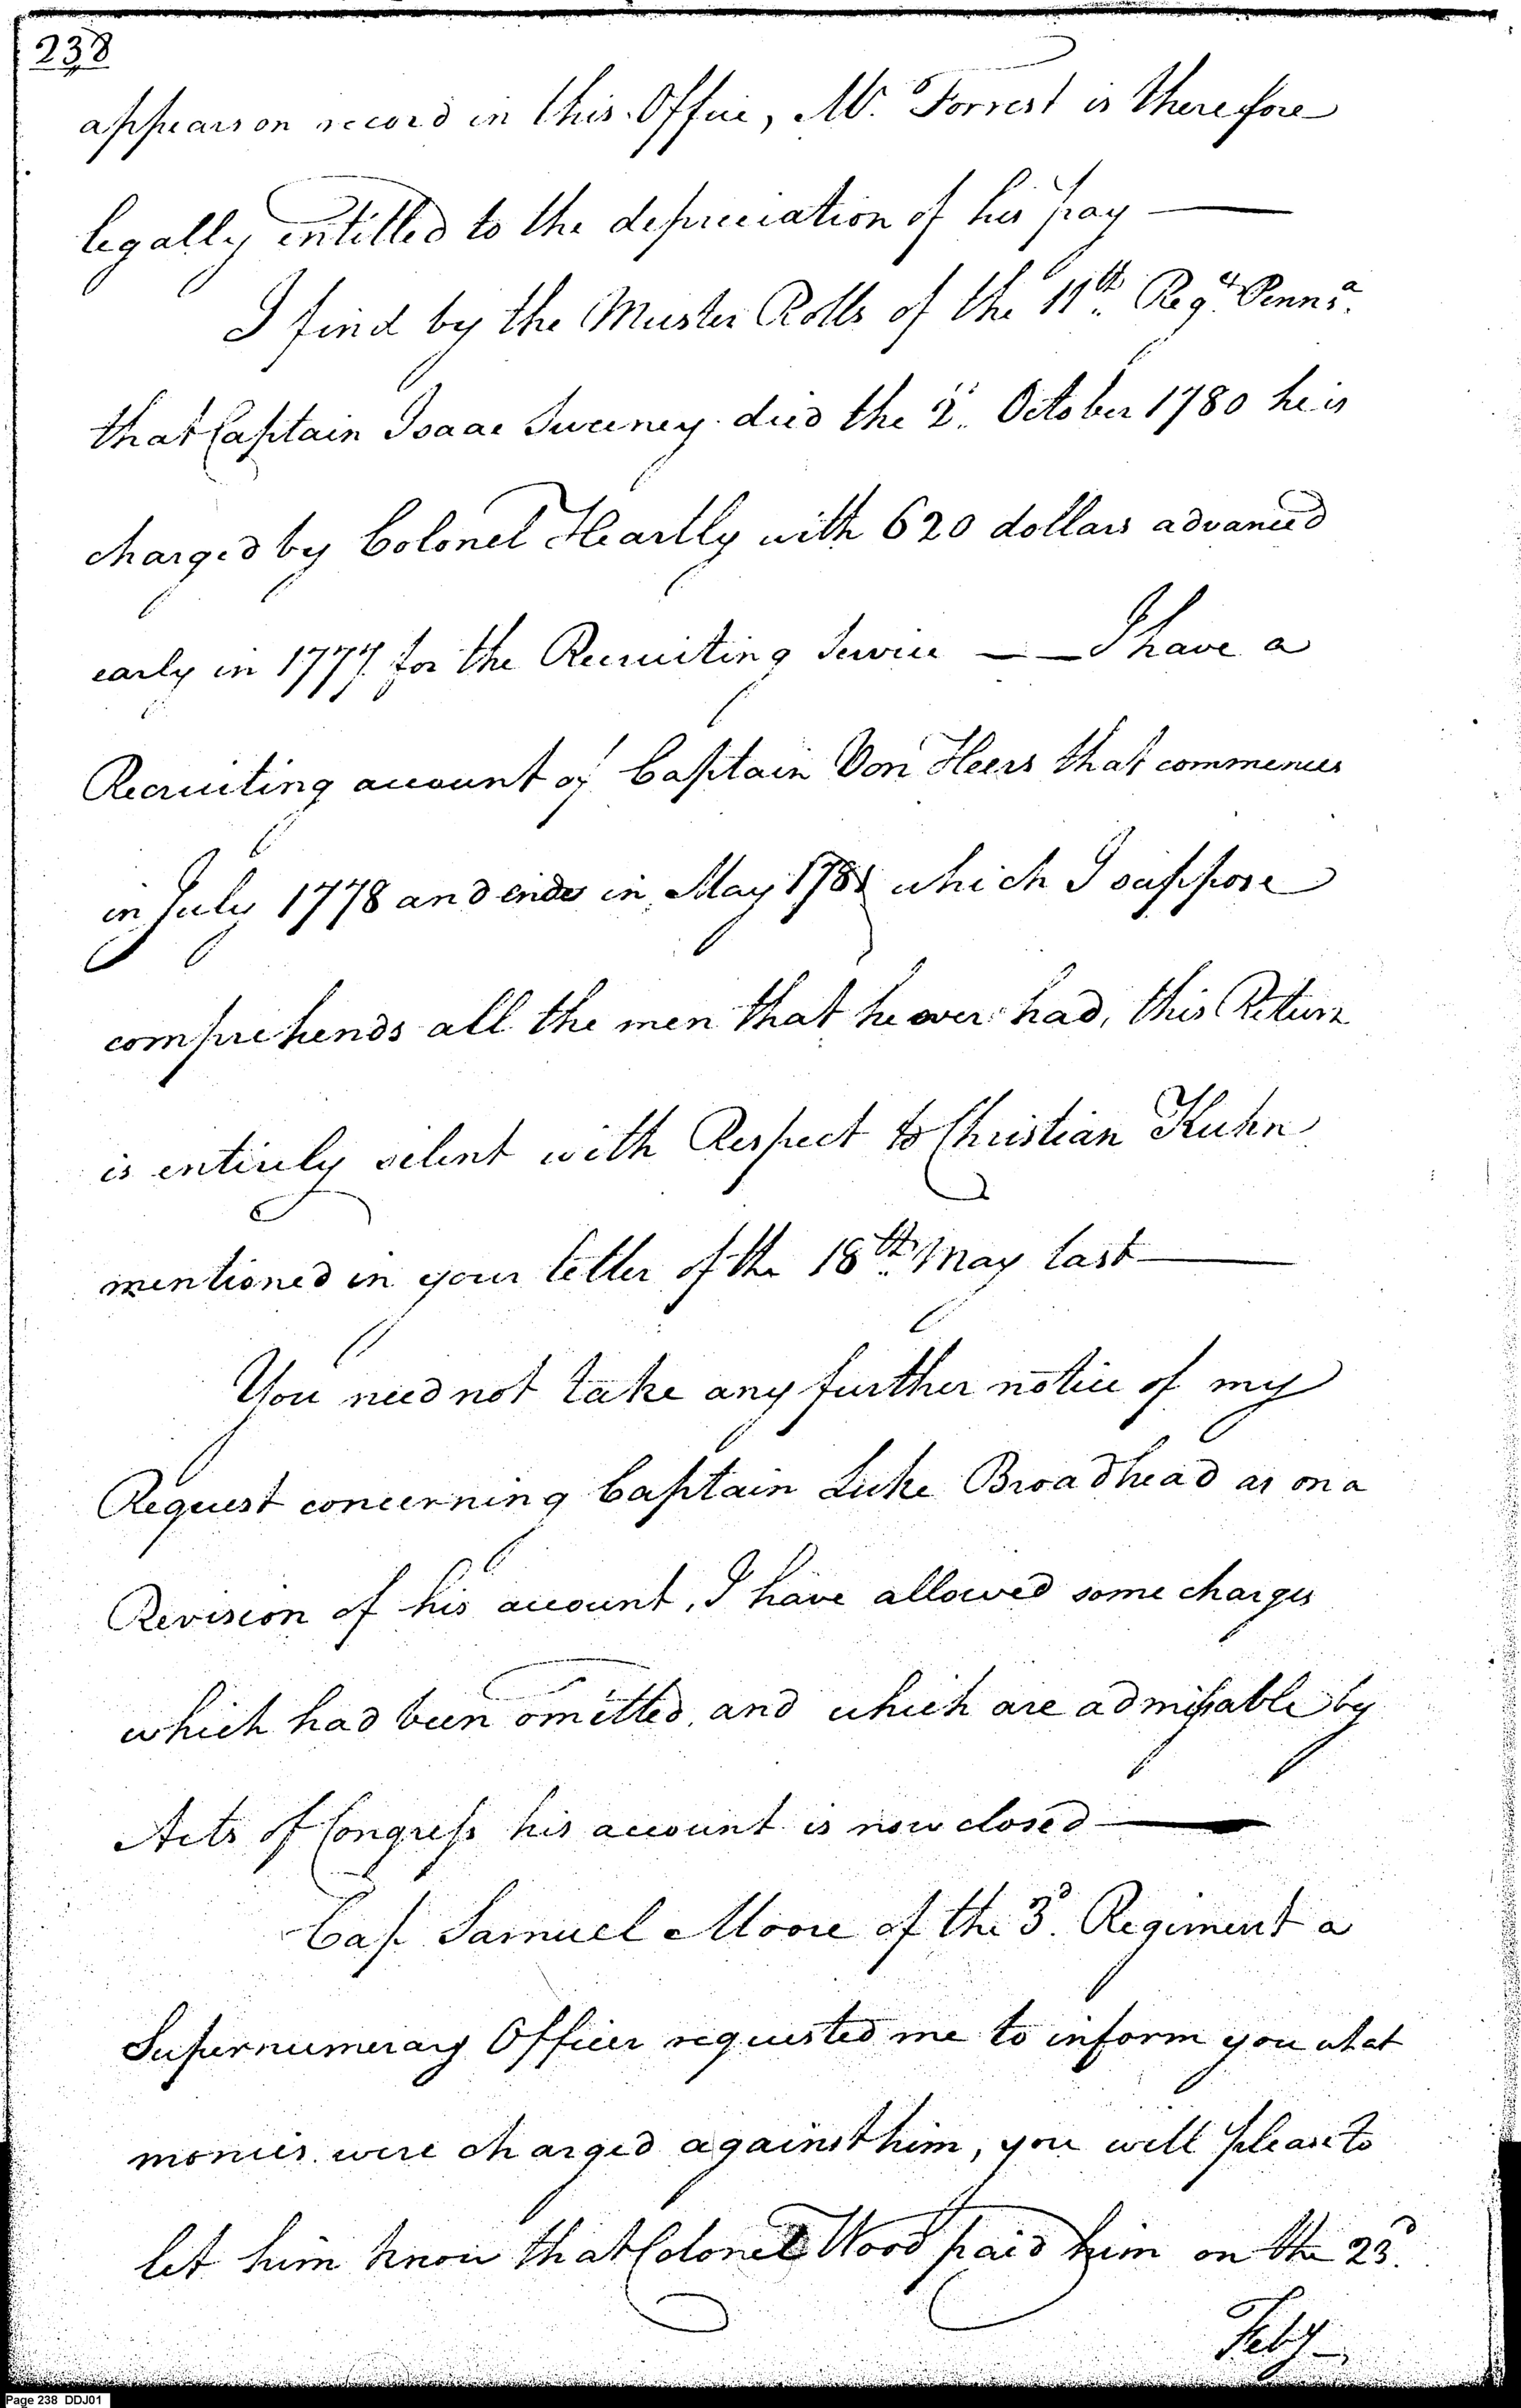 238
appears on record in this Office, Mr. Forrest is therefore
legally entitled to the depreciation of his pay —
I find by the Muster Rolls of the 11th. Regt. Pennsa.
that Captain Isaac Sweeney died the 2d. October 1780 he is
charged by Colonel Heartly with 620 dollars advanced
early in 1777 for the Recruiting Service — — I have a
Recruiting account of Captain Von Heers that commences
in July 1778 and ends in May 1781 which I suppose
comprehends all the men that he ever had, this Return
is entirely silent with Respect to Christian Kuhn
mentioned in your letter of the 18th. May last —
You need not take any further notice of my
Request concerning Captain Luke Broadhead as on a
Revision of his account, I have allowed some charges
which had been omitted, and which are admissable by
Acts of Congress his account is now closed —
Cap. Samuel Moore of the 3d. Regiment a
Supernumerary Officer requested me to inform you what
monies were charged against him, you will please to
let him know that Colonel Wood paid him on the 23d.
Feby —
Page 238 DDJ01